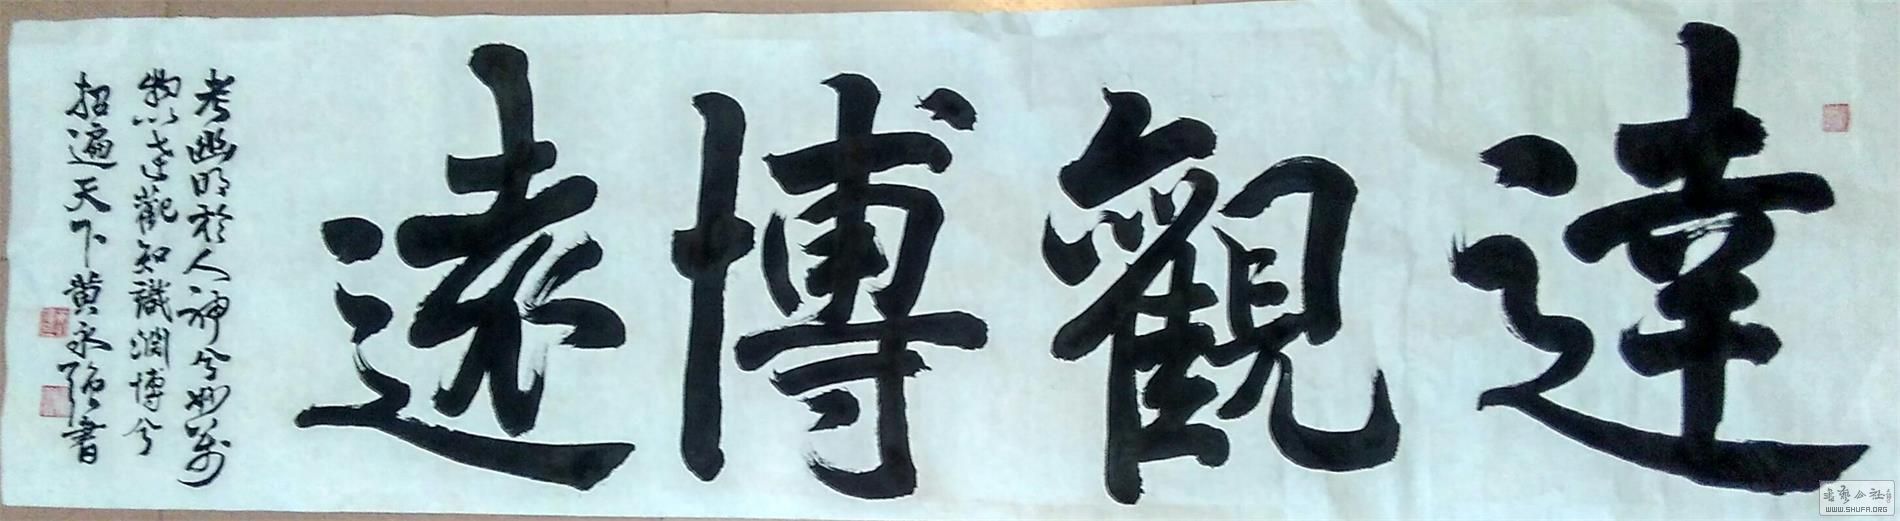 達觀博遠
考幽明於人神兮妙萬
物以達觀知識淵博兮
招遍天下黄永强書
書藝公社
WWW.SHUFA.ORG